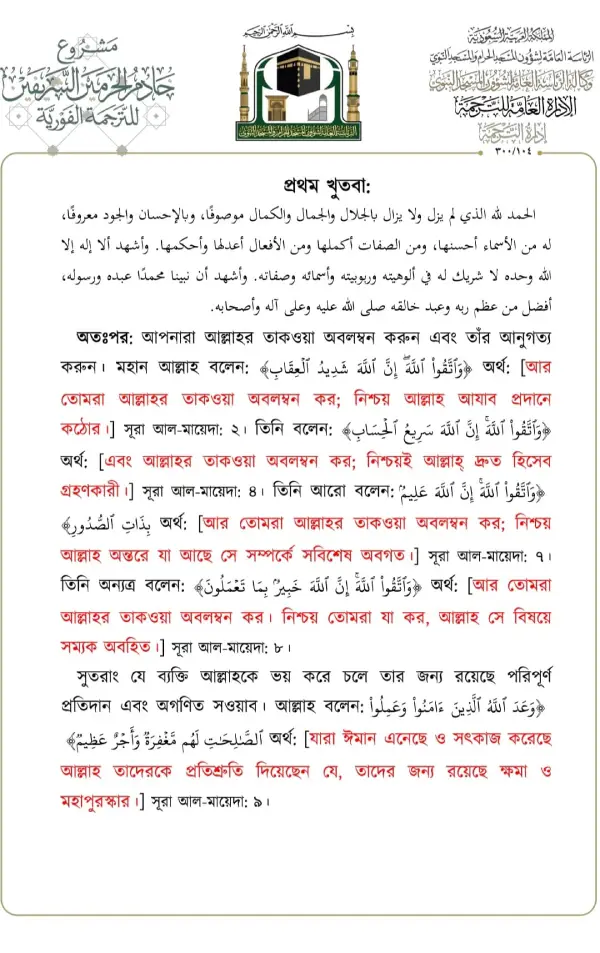 بسم الله الرحمن الرحيم
المملكة العربية السعودية
الرئاسة العامة لشؤون المسجد الحرام والمسجد النبوي
وكالة الرئاسة العامة لشؤون المسجد النبوي
الإدارة العامة للترجمة
إدارة الترجمة
٣٠٠/١٠٤
مشروع
خادم الحرمين الشريفين
للترجمة الفورية
প্রথম খুতবা:
الحمد لله الذي لم يزل ولا يزال بالجلال والجمال والكمال موصوفًا، وبالإحسان والجود معروفًا،
له من الأسماء أحسنها، ومن الصفات أكملها ومن الأفعال أعدلها وأحكمها. وأشهد ألا إله إلا
الله وحده لا شريك له في ألوهيته وربوبيته وأسمائه وصفاته. وأشهد أن نبينا محمدًا عبده ورسوله،
أفضل من عظم ربه وعبد خالقه صلى الله عليه وعلى آله وأصحابه.
অতঃপর: আপনারা আল্লাহর তাকওয়া অবলম্বন করুন এবং তাঁর আনুগত্য
করুন। মহান আল্লাহ বলেন: ﴿وَٱتَّقُواْ ٱللَّهَۖ إِنَّ ٱللَّهَ شَدِيدُ ٱلْعِقَابِ﴾ অর্থ: [আর
তোমরা আল্লাহর তাকওয়া অবলম্বন কর; নিশ্চয় আল্লাহ আযাব প্রদানে
কঠোর।] সূরা আল-মায়েদা: ২। তিনি বলেন: ﴿وَٱتَّقُواْ ٱللَّهَۚ إِنَّ ٱللَّهَ سَرِيعُ ٱلْحِسَابِ﴾
অর্থ: [এবং আল্লাহর তাকওয়া অবলম্বন কর; নিশ্চয়ই আল্লাহ্ দ্রুত হিসেব
গ্রহণকারী।] সূরা আল-মায়েদা: ৪। তিনি আরো বলেন: ﴿وَٱتَّقُواْ ٱللَّهَۚ إِنَّ ٱللَّهَ عَلِيمُۢ
بِذَاتِ ٱلصُّدُورِ﴾ অর্থ: [আর তোমরা আল্লাহর তাকওয়া অবলম্বন কর; নিশ্চয়
আল্লাহ অন্তরে যা আছে সে সম্পর্কে সবিশেষ অবগত।] সূরা আল-মায়েদা: ৭।
তিনি অন্যত্র বলেন: ﴿وَٱتَّقُواْ ٱللَّهَۚ إِنَّ ٱللَّهَ خَبِيرُۢ بِمَا تَعْمَلُونَ﴾ অর্থ: [আর তোমরা
আল্লাহর তাকওয়া অবলম্বন কর। নিশ্চয় তোমরা যা কর, আল্লাহ সে বিষয়ে
সম্যক অবহিত।] সূরা আল-মায়েদা: ৮।
সুতরাং যে ব্যক্তি আল্লাহকে ভয় করে চলে তার জন্য রয়েছে পরিপূর্ণ
প্রতিদান এবং অগণিত সওয়াব। আল্লাহ বলেন: ﴿وَعَدَ ٱللَّهُ ٱلَّذِينَ ءَامَنُواْ وَعَمِلُواْ
ٱلصَّٰلِحَٰتِ لَهُم مَّغْفِرَةٌ وَأَجْرٌ عَظِيمٌ﴾ অর্থ: [যারা ঈমান এনেছে ও সৎকাজ করেছে
আল্লাহ তাদেরকে প্রতিশ্রুতি দিয়েছেন যে, তাদের জন্য রয়েছে ক্ষমা ও
মহাপুরস্কার।] সূরা আল-মায়েদা: ৯।